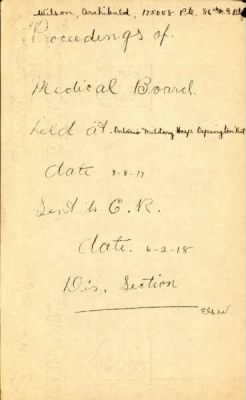 Wilson, Archibald, 175058 Pte. 86th M.G. Bn
Proceedings of
Medical Board
held at Ontario Military Hosp. Orpington Kent
date 3-8-17
Sent to C.R.
date. 6-2-18
Dis. Section